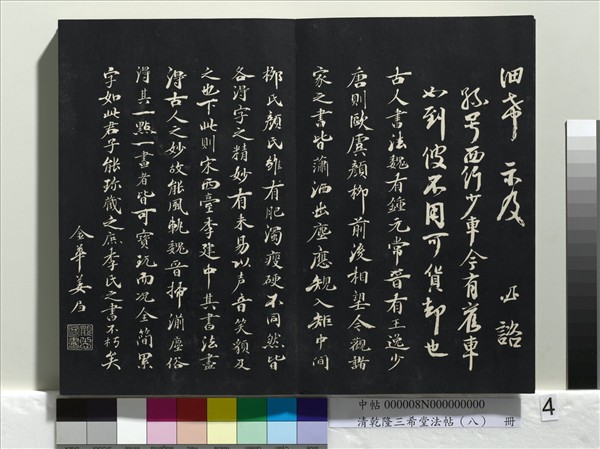 細希 示及 諮
孫号西行少車今有舊車
如到彼不用可貨却也
古人書法魏有鍾元常晉有王逸少
唐則歐虞顏柳前後相望今觀諸
家之書皆瀟洒出塵應規入矩中間
柳氏顏氏雖有肥濁瘦硬不同然皆
各得字之精妙有未易以声音笑貌及
之也下此則宋西臺李建中其書法盡
得古人之妙故能風軼魏晉掃湔塵俗
得其一點一畫者皆可寶玩而况全簡累
字如此君子能珍藏之庶李氏之書不朽矣
金華姜
中帖 000008N000000000
清乾隆三希堂法帖(八) 冊
4